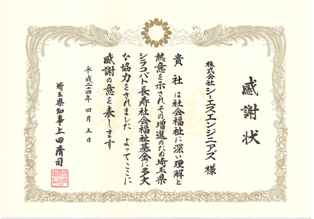 感謝状
株式会社 シーエスエンジニアズ 様
貴社は社会福祉に深い理解と
熱意を示されその増進のため埼玉県
シラコバト長寿社会福祉基金に多大
な協力をされました よってここに
感謝の意を表します
平成二十四年 四月 五日
埼玉県知事 上田清司